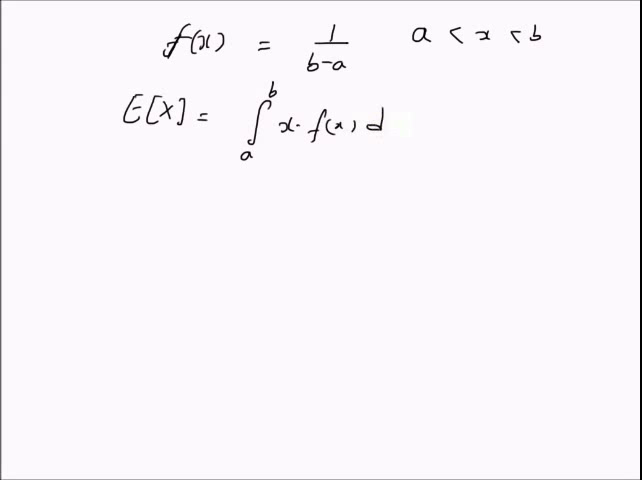 f(x) = 1/(b-a) a < x < b
E[X] = ∫_a^b x · f(x) d